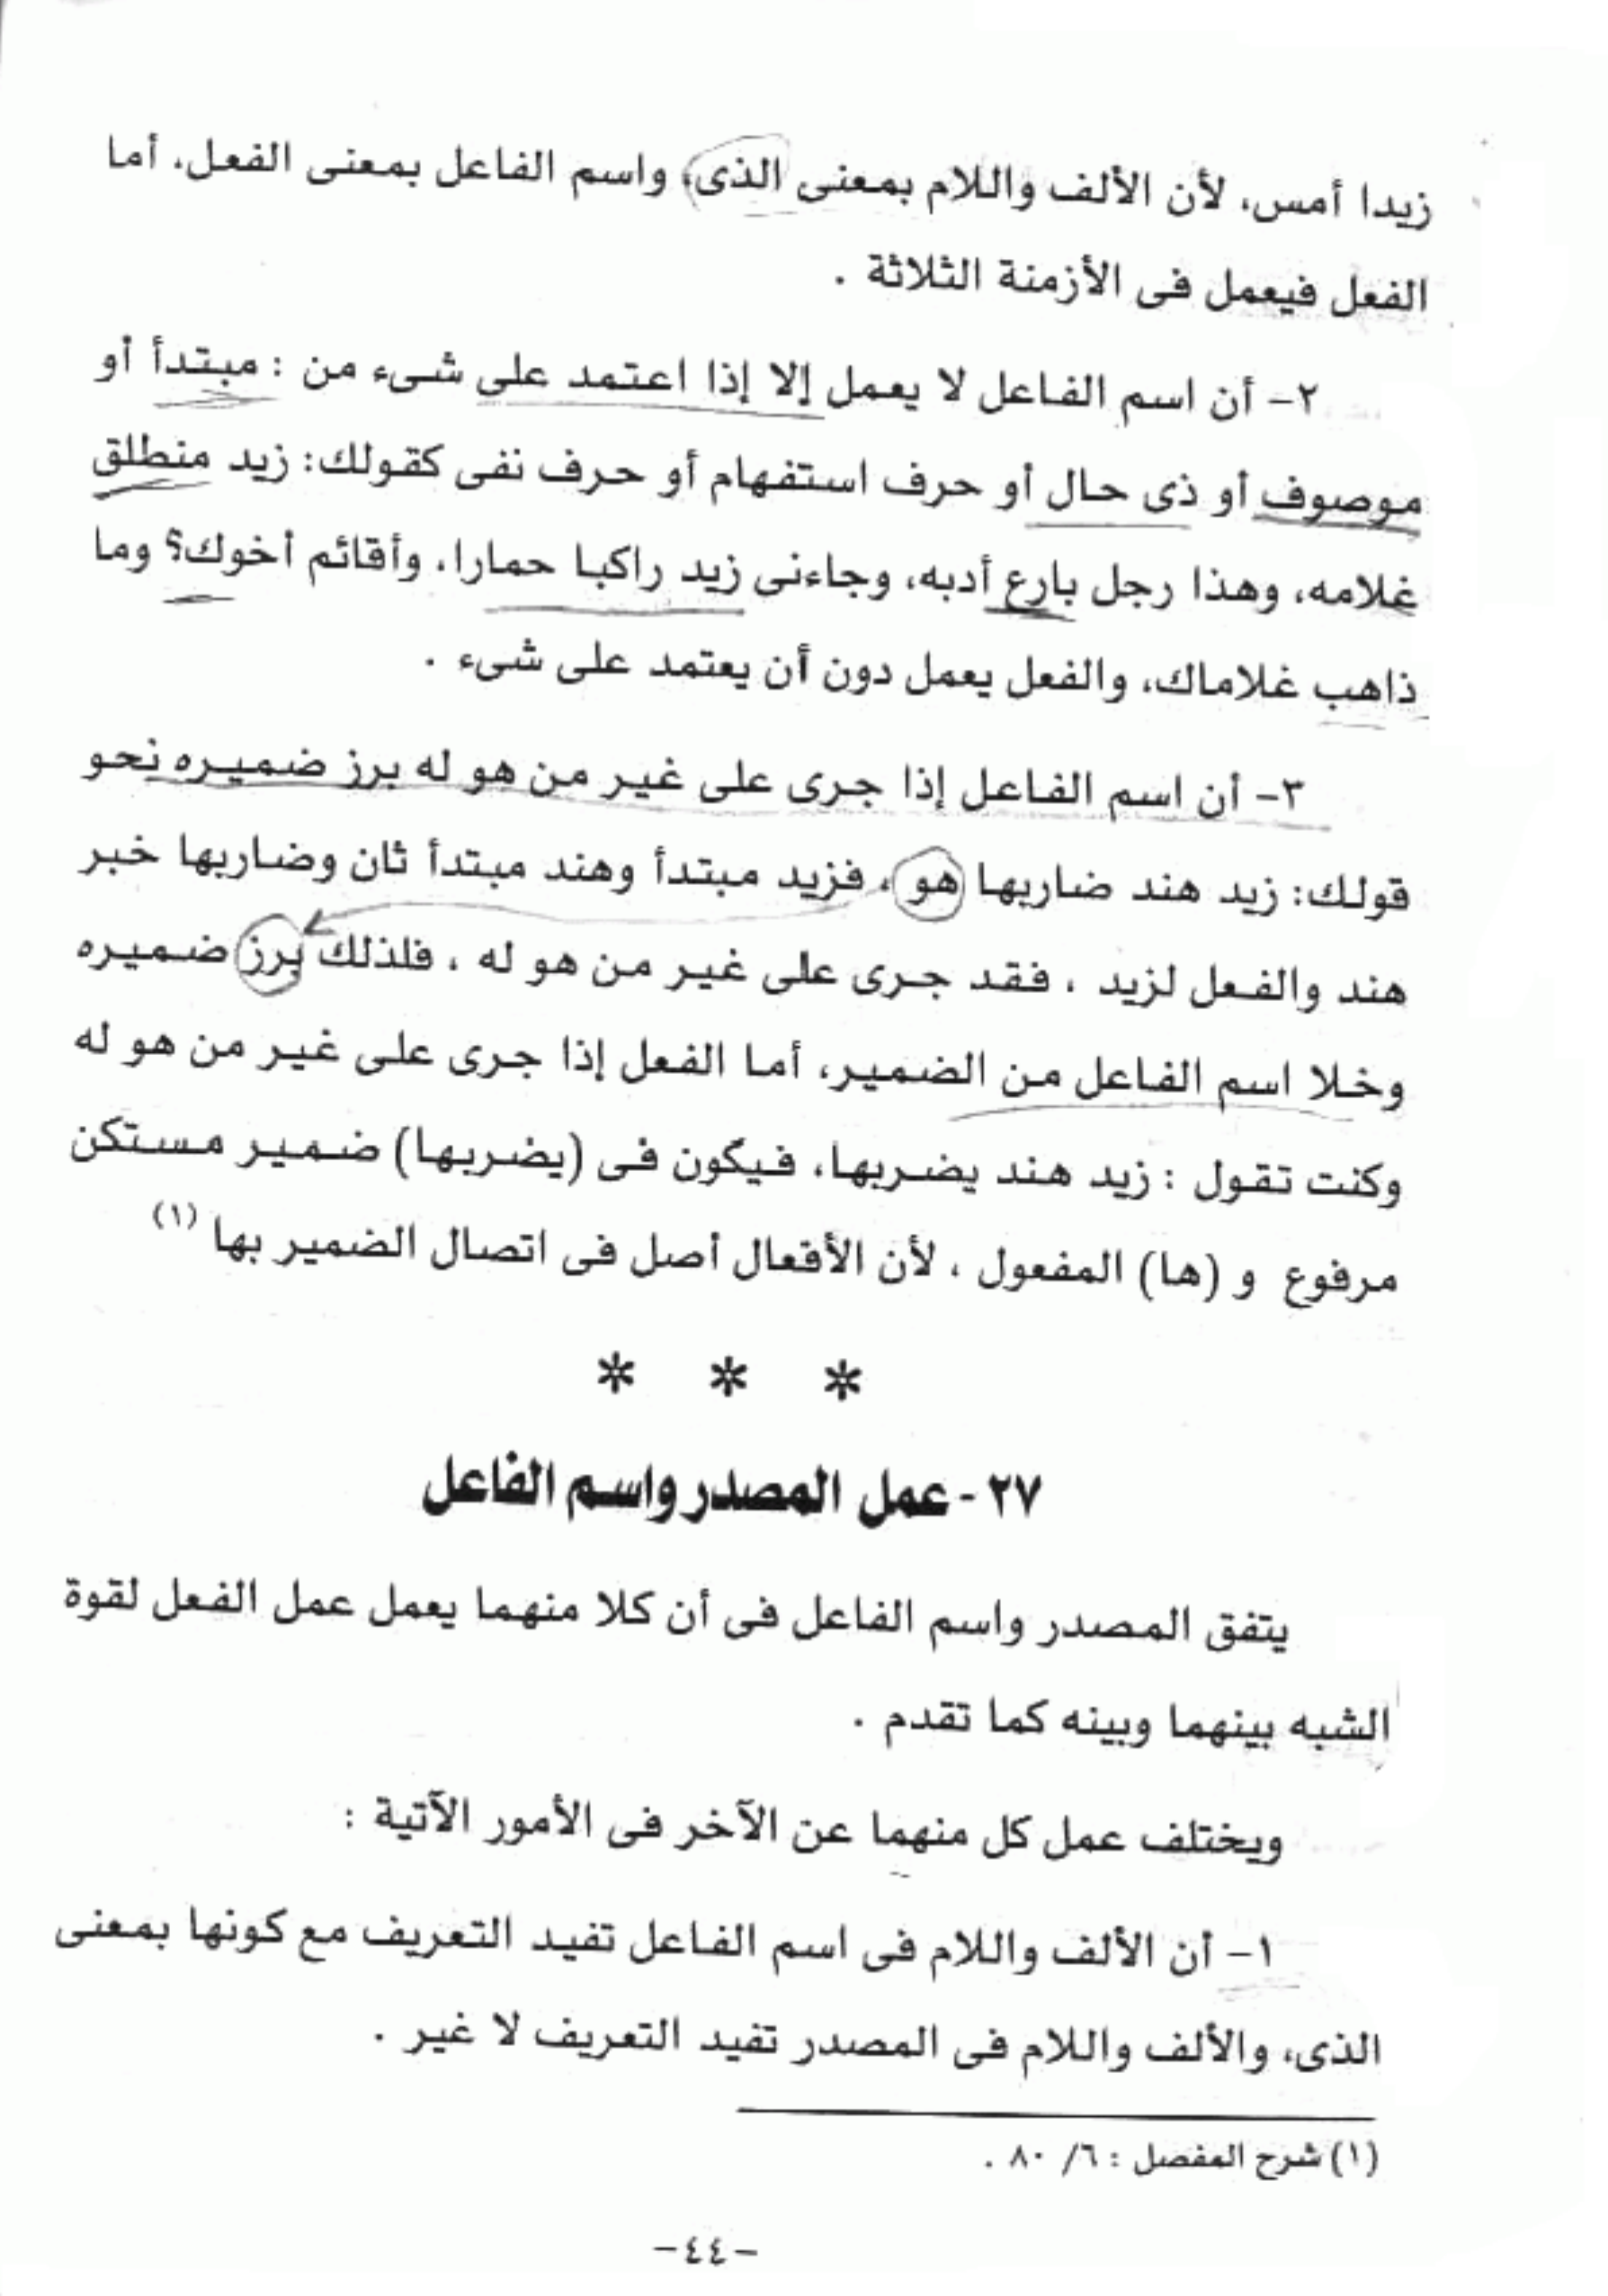 زيدا أمس، لأن الألف واللام بمعنى الذى، واسم الفاعل بمعنى الفعل، أما
الفعل فيعمل فى الأزمنة الثلاثة .
٢- أن اسم الفاعل لا يعمل إلا إذا اعتمد على شىء من : مبتدأ أو
موصوف أو ذى حال أو حرف استفهام أو حرف نفى كقولك: زيد منطلق
غلامه، وهذا رجل بارع أدبه، وجاءنى زيد راكبا حمارا، وأقائم أخوك؟ وما
ذاهب غلاماك، والفعل يعمل دون أن يعتمد على شىء .
٣- أن اسم الفاعل إذا جرى على غير من هو له برز ضميره نحو
قولك: زيد هند ضاربها هو ، فزيد مبتدأ وهند مبتدأ ثان وضاربها خبر
هند والفعل لزيد ، فقد جرى على غير من هو له ، فلذلك برز ضميره
وخلا اسم الفاعل من الضمير، أما الفعل إذا جرى على غير من هو له
وكنت تقول : زيد هند يضربها، فيكون فى (يضربها) ضمير مستكن
مرفوع و (ها) المفعول ، لأن الأفعال أصل فى اتصال الضمير بها (١)
* * *
٢٧ - عمل المصدر واسم الفاعل
يتفق المصدر واسم الفاعل فى أن كلا منهما يعمل عمل الفعل لقوة
الشبه بينهما وبينه كما تقدم .
ويختلف عمل كل منهما عن الآخر فى الأمور الآتية :
١- أن الألف واللام فى اسم الفاعل تفيد التعريف مع كونها بمعنى
الذى، والألف واللام فى المصدر تفيد التعريف لا غير .
(١) شرح المفصل : ٦/ ٨٠ .
-٤٤-